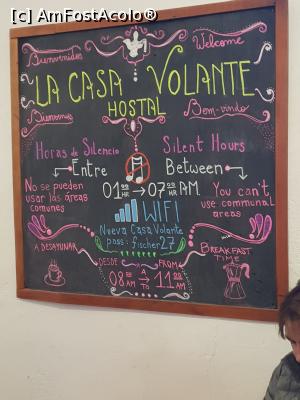 [c] AmFostAcolo®
Bienvenidos
Welcome
LA CASA VOLANTE
HOSTAL
Bienvenus
Bem-vindo
Horas de Silencio
Silent Hours
Entre
Between
01:00 HR → 07:00 AM
No se pueden usar las áreas comunes
You can't use communal areas
WIFI
Nueva Casa Volante
pass: fischer27
A DESAYUNAR
BREAKFAST TIME
DESDE
FROM
08:00 AM
A
TO
11:00 AM